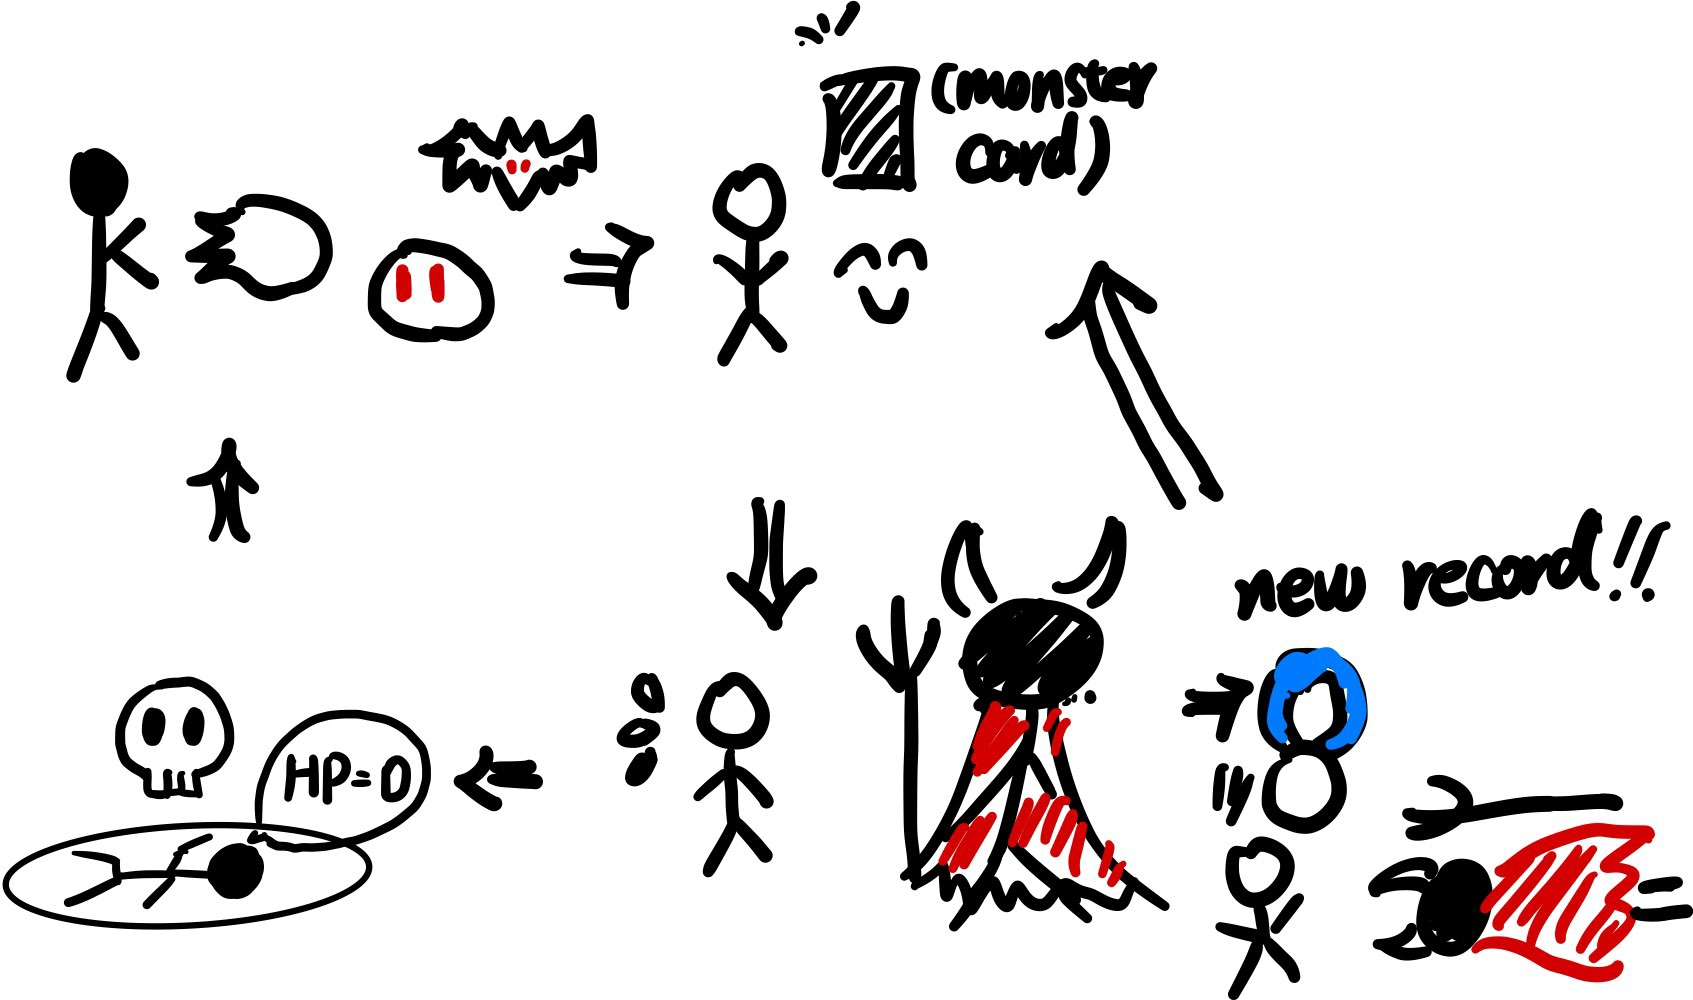 (monster
card)
new record!!
HP=0